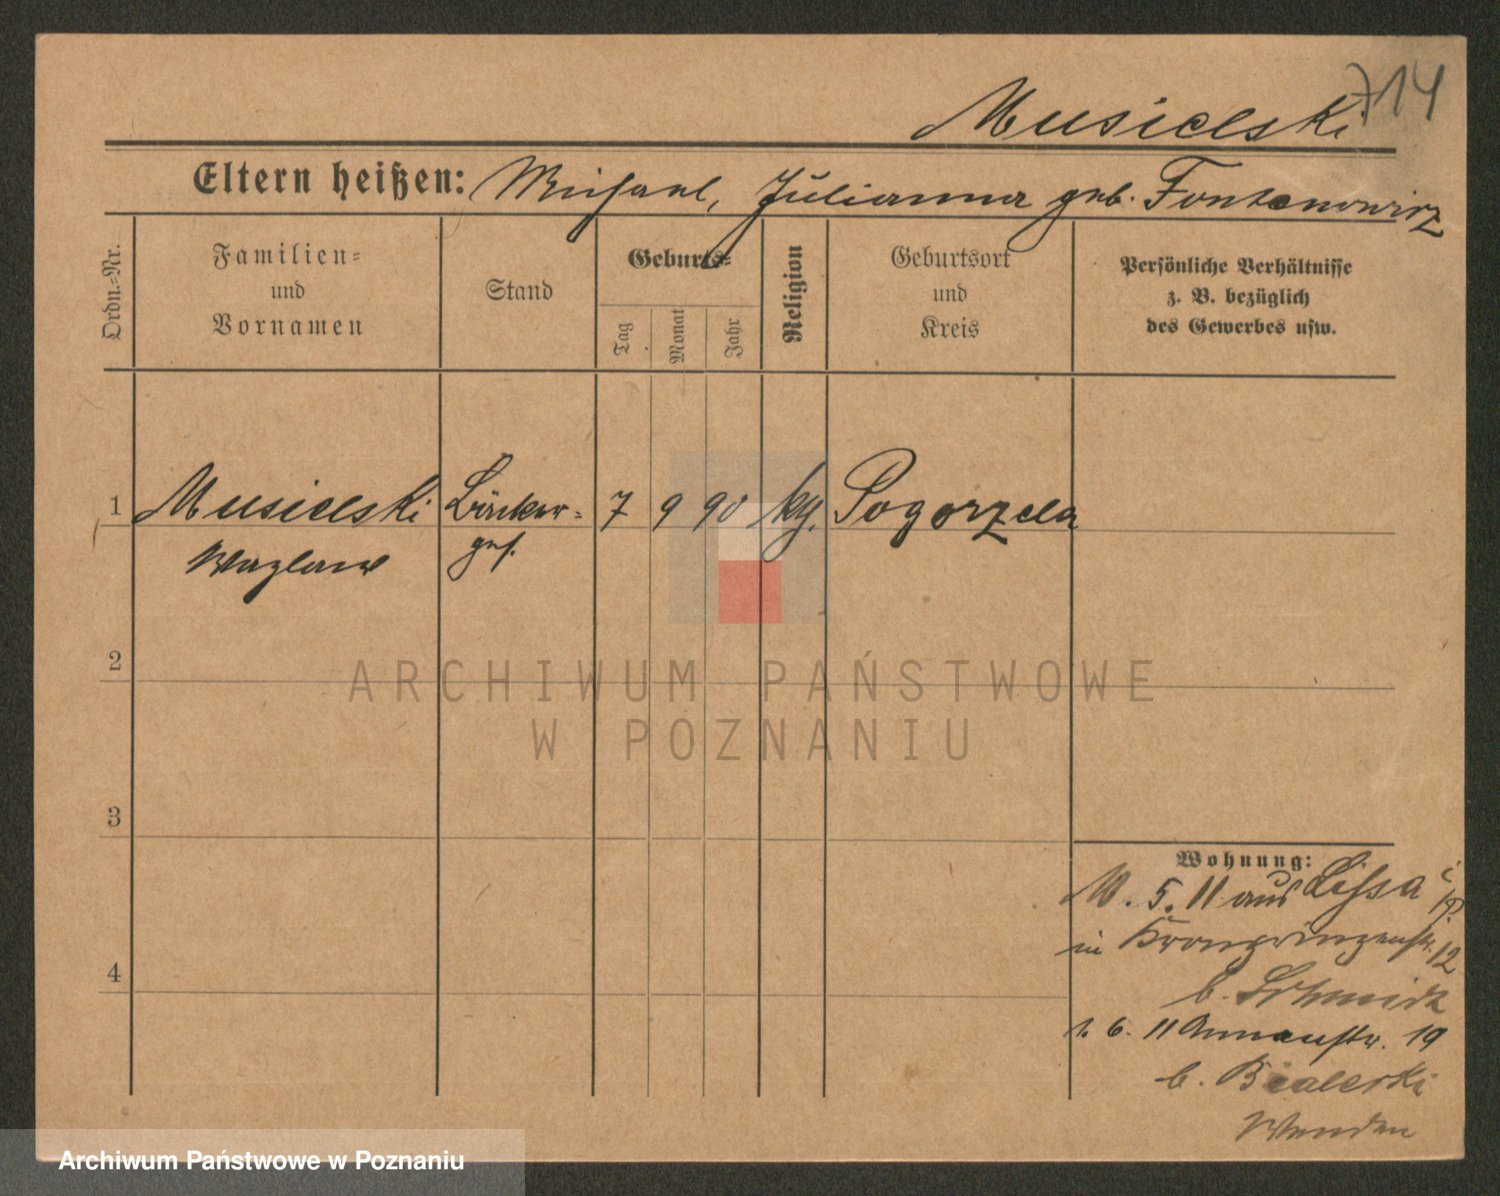 714
Musielski
Eltern heißen: Michael, Julianna geb. Fontanowicz
Ordn.-Nr.
Familien=
und
Vornamen
Stand
Geburts=
Tag
Monat
Jahr
Religion
Geburtsort
und
Kreis
Persönliche Verhältnisse
z. B. bezüglich
des Gewerbes usw.
1 Musielski Bäcker= 7 9 90 kg. Pogorzela
Wazlaw ges.
2
3
4
Wohnung:
5. 11 aus Lissa i/P.
in Kronprinzenstr. 12
b. Schmidt
1. 6. 11 Annenstr. 19
b. Bialecki
ARCHIWUM PAŃSTWOWE
W POZNANIU
Archiwum Państwowe w Poznaniu